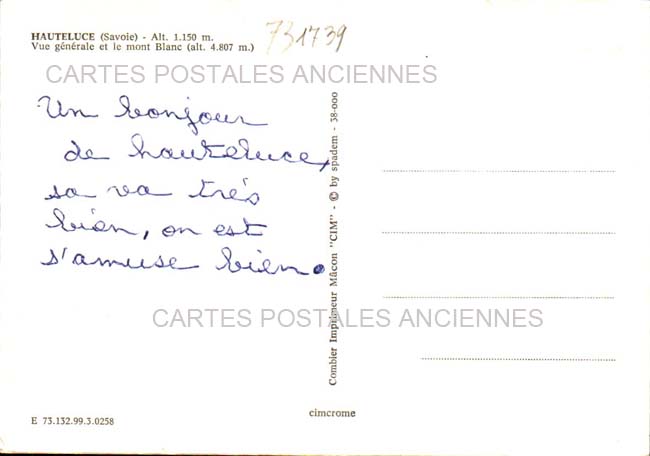 HAUTELUCE (Savoie) - Alt. 1.150 m.
Vue générale et le mont Blanc (alt. 4.807 m.)
731739
CARTES POSTALES ANCIENNES
Un bonjour
de hauteluce,
sa va très
bien, on est
s'amuse bien.
CARTES POSTALES ANCIENNES
Combier Imprimeur Mâcon "CIM" - © by spadem - 38-000
cimcrome
E 73.132.99.3.0258